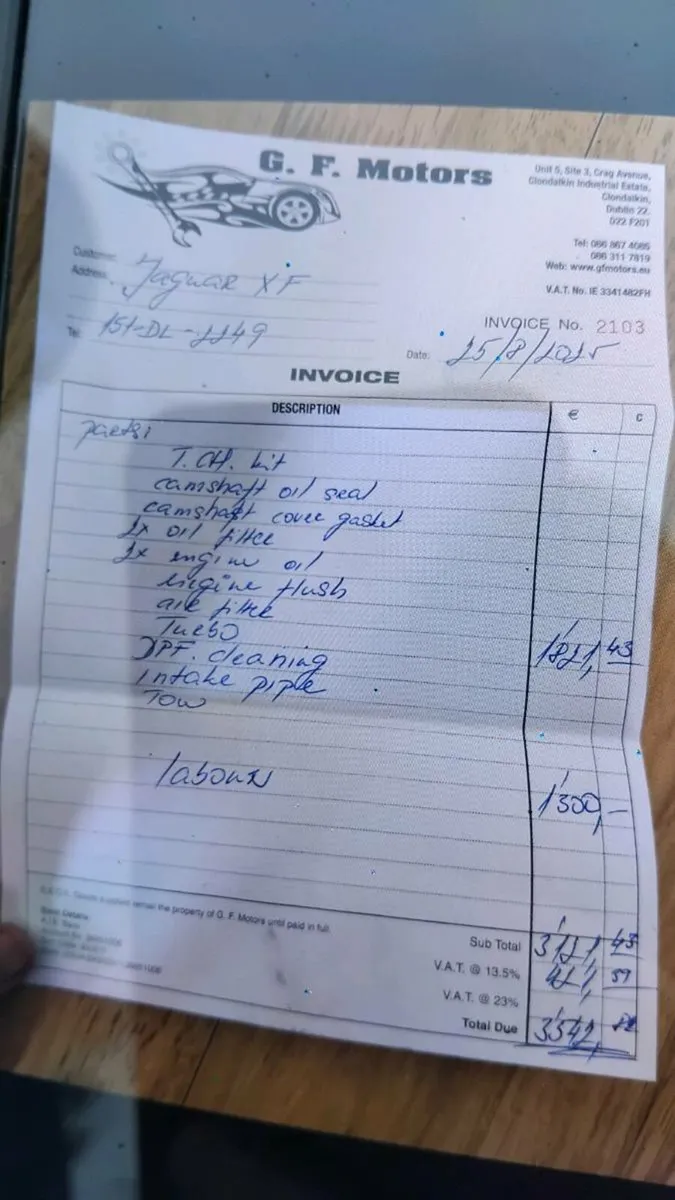 G. F. Motors
Unit 5, Site 3, Crag Avenue,
Clondalkin Industrial Estate,
Clondalkin,
Dublin 22.
D22 F201
Tel: 086 867 4085
086 311 7819
Web: www.gfmotors.eu
V.A.T. No. IE 3341482FH
Customer
Address
Jaguar XF
Tel:
151-DL-2249
INVOICE No. 2103
Date: 25/8/2025
INVOICE
DESCRIPTION € C
parts:
T. CH. kit
camshaft oil seal
camshaft cover gasket
2x oil filter
2x engine oil
engine flush
air filter
Turbo
DPF. cleaning 1821,43
intake pipe
Tow
labour 1300,-
goods supplied remain the property of G. F. Motors until paid in full.
Bank Details:
Sub Total 3121,43
V.A.T. @ 13.5% 421,39
V.A.T. @ 23%
Total Due 3542,82